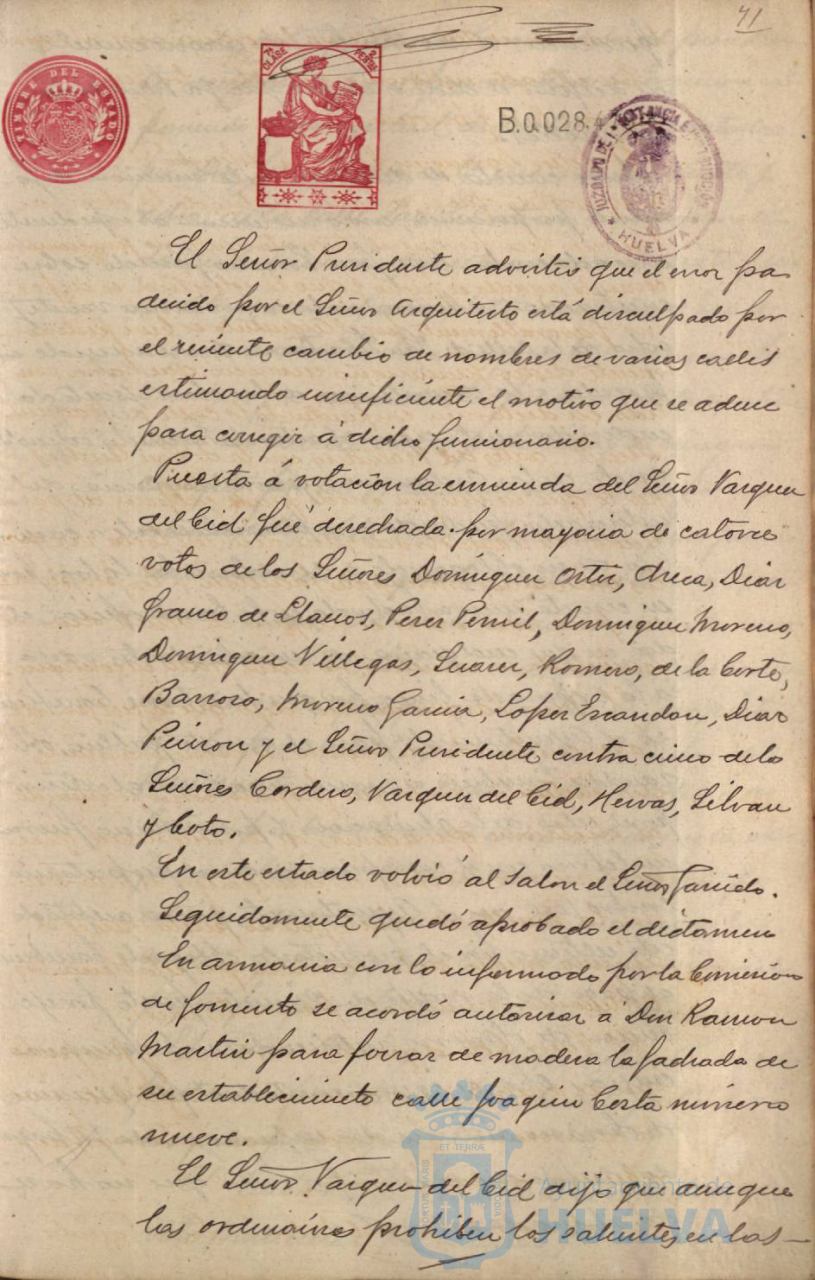 41
TIMBRE DEL ESTADO
7ª CLASE 2 PESETAS
B.0.028.4
JUZGADO DE 1ª INSTANCIA E INSTRUCCION
* HUELVA *
El Señor Presidente advirtió que el error pa-
decido por el Señor Arquitecto está disculpado por
el reciente cambio de nombres de varias calles
estimando insuficiente el motivo que se aduce
para corregir á dicho funcionario.
Puesta á votación la enmienda del Señor Vazquez
del Cid fué desechada por mayoria de catorce
votos de los Señores Dominguez Ortiz, Checa, Diaz
Franco de Llanos, Perez Pemil, Dominguez Moreno,
Dominguez Villegas, Suarez, Romero, de la Corte,
Barroso, Moreno Garcia, Lopez Escandon, Diaz
y el Señor Presidente contra cinco de los
Señores Cordero, Vazquez del Cid, Hervas, Silvan
y Coto.
En este estado volvió al salon el Señor Garrido.
Seguidamente quedó aprobado el dictamen
En armonia con lo informado por la Comision
de fomento se acordó autorizar á Don Ramon
Martin para forrar de madera la fachada de
su establecimiento calle Joaquin Costa número
nueve.
El Señor Vazquez del Cid dijo que aunque
las ordenanzas prohiben los salientes en las—
ET TERRÆ
Ayuntamiento de
HUELVA